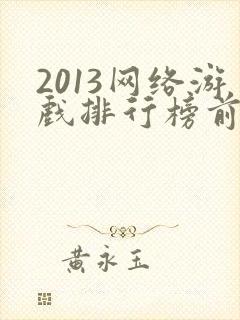 2013网络游
戏排行榜前
黄永玉